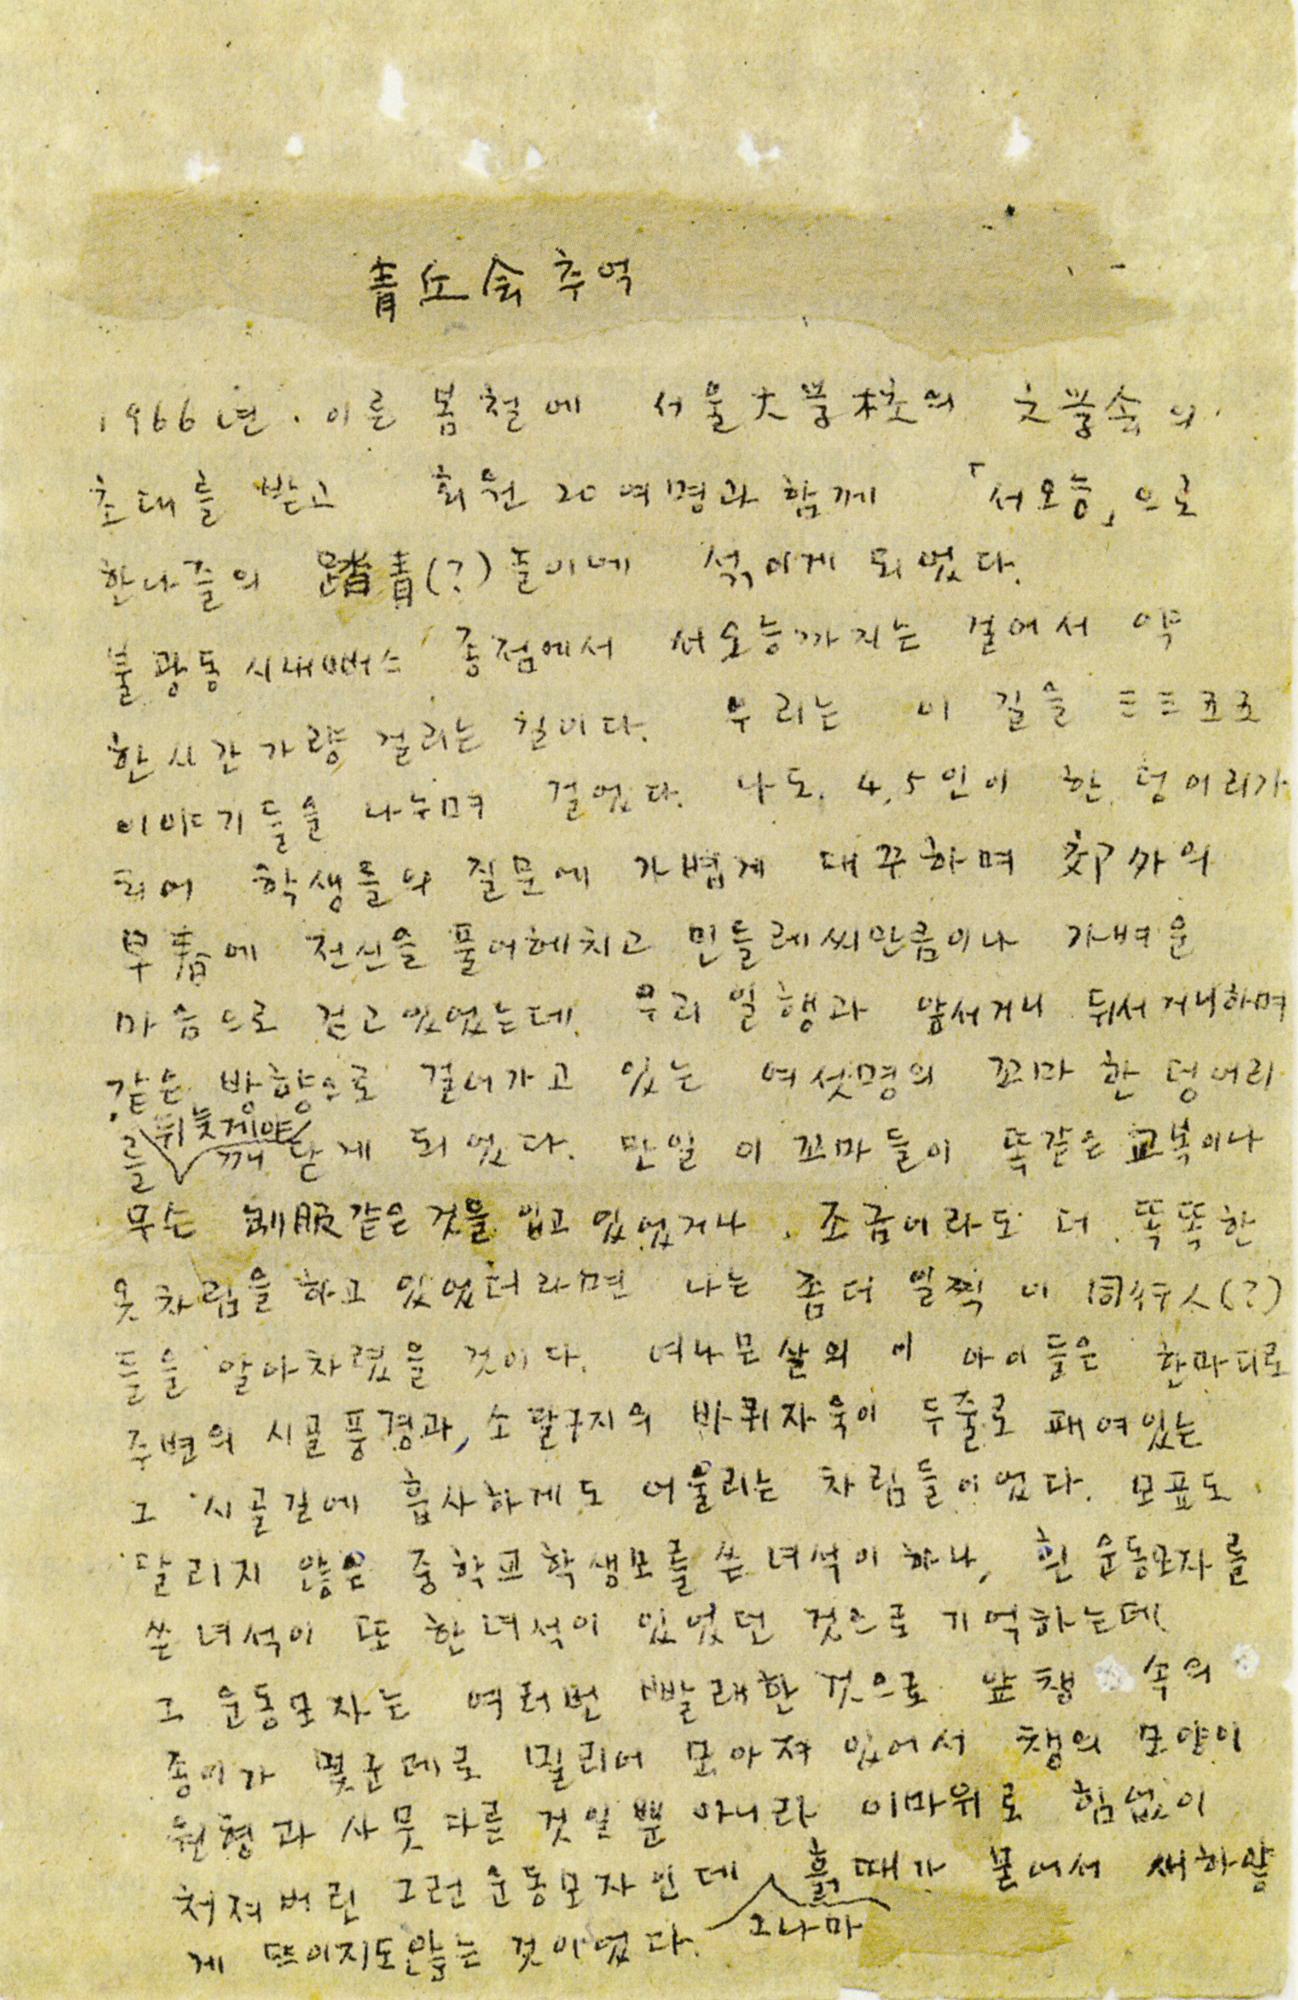 靑丘会 추억
1966년. 이른 봄철에 서울大学校의 文学会의
초대를 받고 회원 20여명과 함께 「서오능」으로
한나절의 踏靑(?)놀이에 섞이게 되었다.
불광동 시내뻐스 종점에서 서오능까지는 걸어서 약
한시간가량 걸리는 길이다. 우리는 이 길을 三三五五
이야기들을 나누며 걸었다. 나도 4,5인이 한 덩어리가
되어 학생들의 질문에 가볍게 대꾸하며 郊外의
早春에 전신을 풀어헤치고 민들레씨만큼이나 가벼운
마음으로 걷고있었는데, 우리 일행과 앞서거니 뒤서거니하며
같은 방향으로 걸어가고 있는 여섯명의 꼬마 한 덩어리
를 뒤늦게야 깨닫게 되었다. 만일 이 꼬마들이 똑같은 교복이나
무슨 制服같은 것을 입고 있었거나, 조금이라도 더 똑똑한
옷차림을 하고 있었더라면 나는 좀더 일찍 이 同行人(?)
들을 알아차렸을 것이다. 여나믄살의 이 아이들은 한마디로
주변의 시골풍경과, 소달구지의 바퀴자욱이 두줄로 패여있는
그 시골길에 흡사하게도 어울리는 차림들이었다. 모표도
달리지 않은 중학교학생모를 쓴 녀석이 하나, 흰 운동모자를
쓴 녀석이 또 한녀석이 있었던 것으로 기억하는데,
그 운동모자는 여러번 빨래한 것으로 앞챙 속의
종이가 몇군데로 밀리어 모아져 있어서 챙의 모양이
원형과 사뭇 다를 것일뿐 아니라 이마위로 힘없이
처져버린 그런 운동모자인데 그나마 흙때가 묻어서 새하얗
게 뜨이지도않는 것이었다.